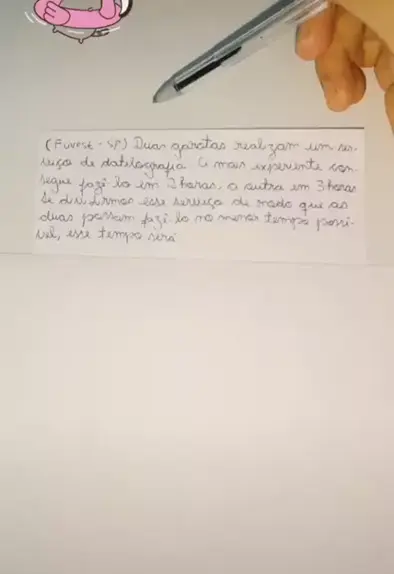 (Fuvest - SP) Duas garotas realizam um ser-
viço de datilografia. A mais experiente con-
segue fazê-lo em 2 horas, a outra em 3 horas
Se dividirmos esse serviço de modo que as
duas possam fazê-lo no menor tempo possí-
vel, esse tempo será